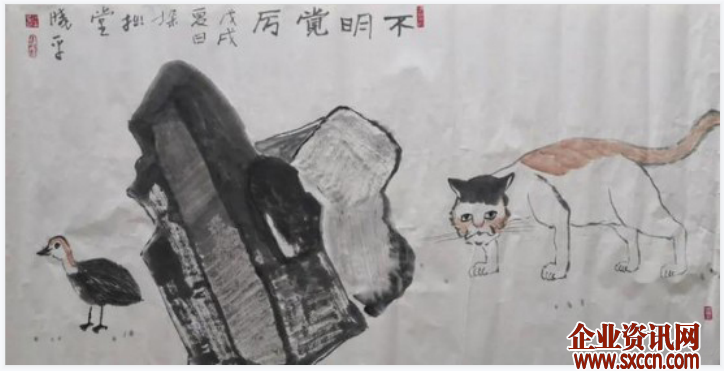 不明覺厉
戊戌
夏日
堂
企业资讯网
www.sxccn.com